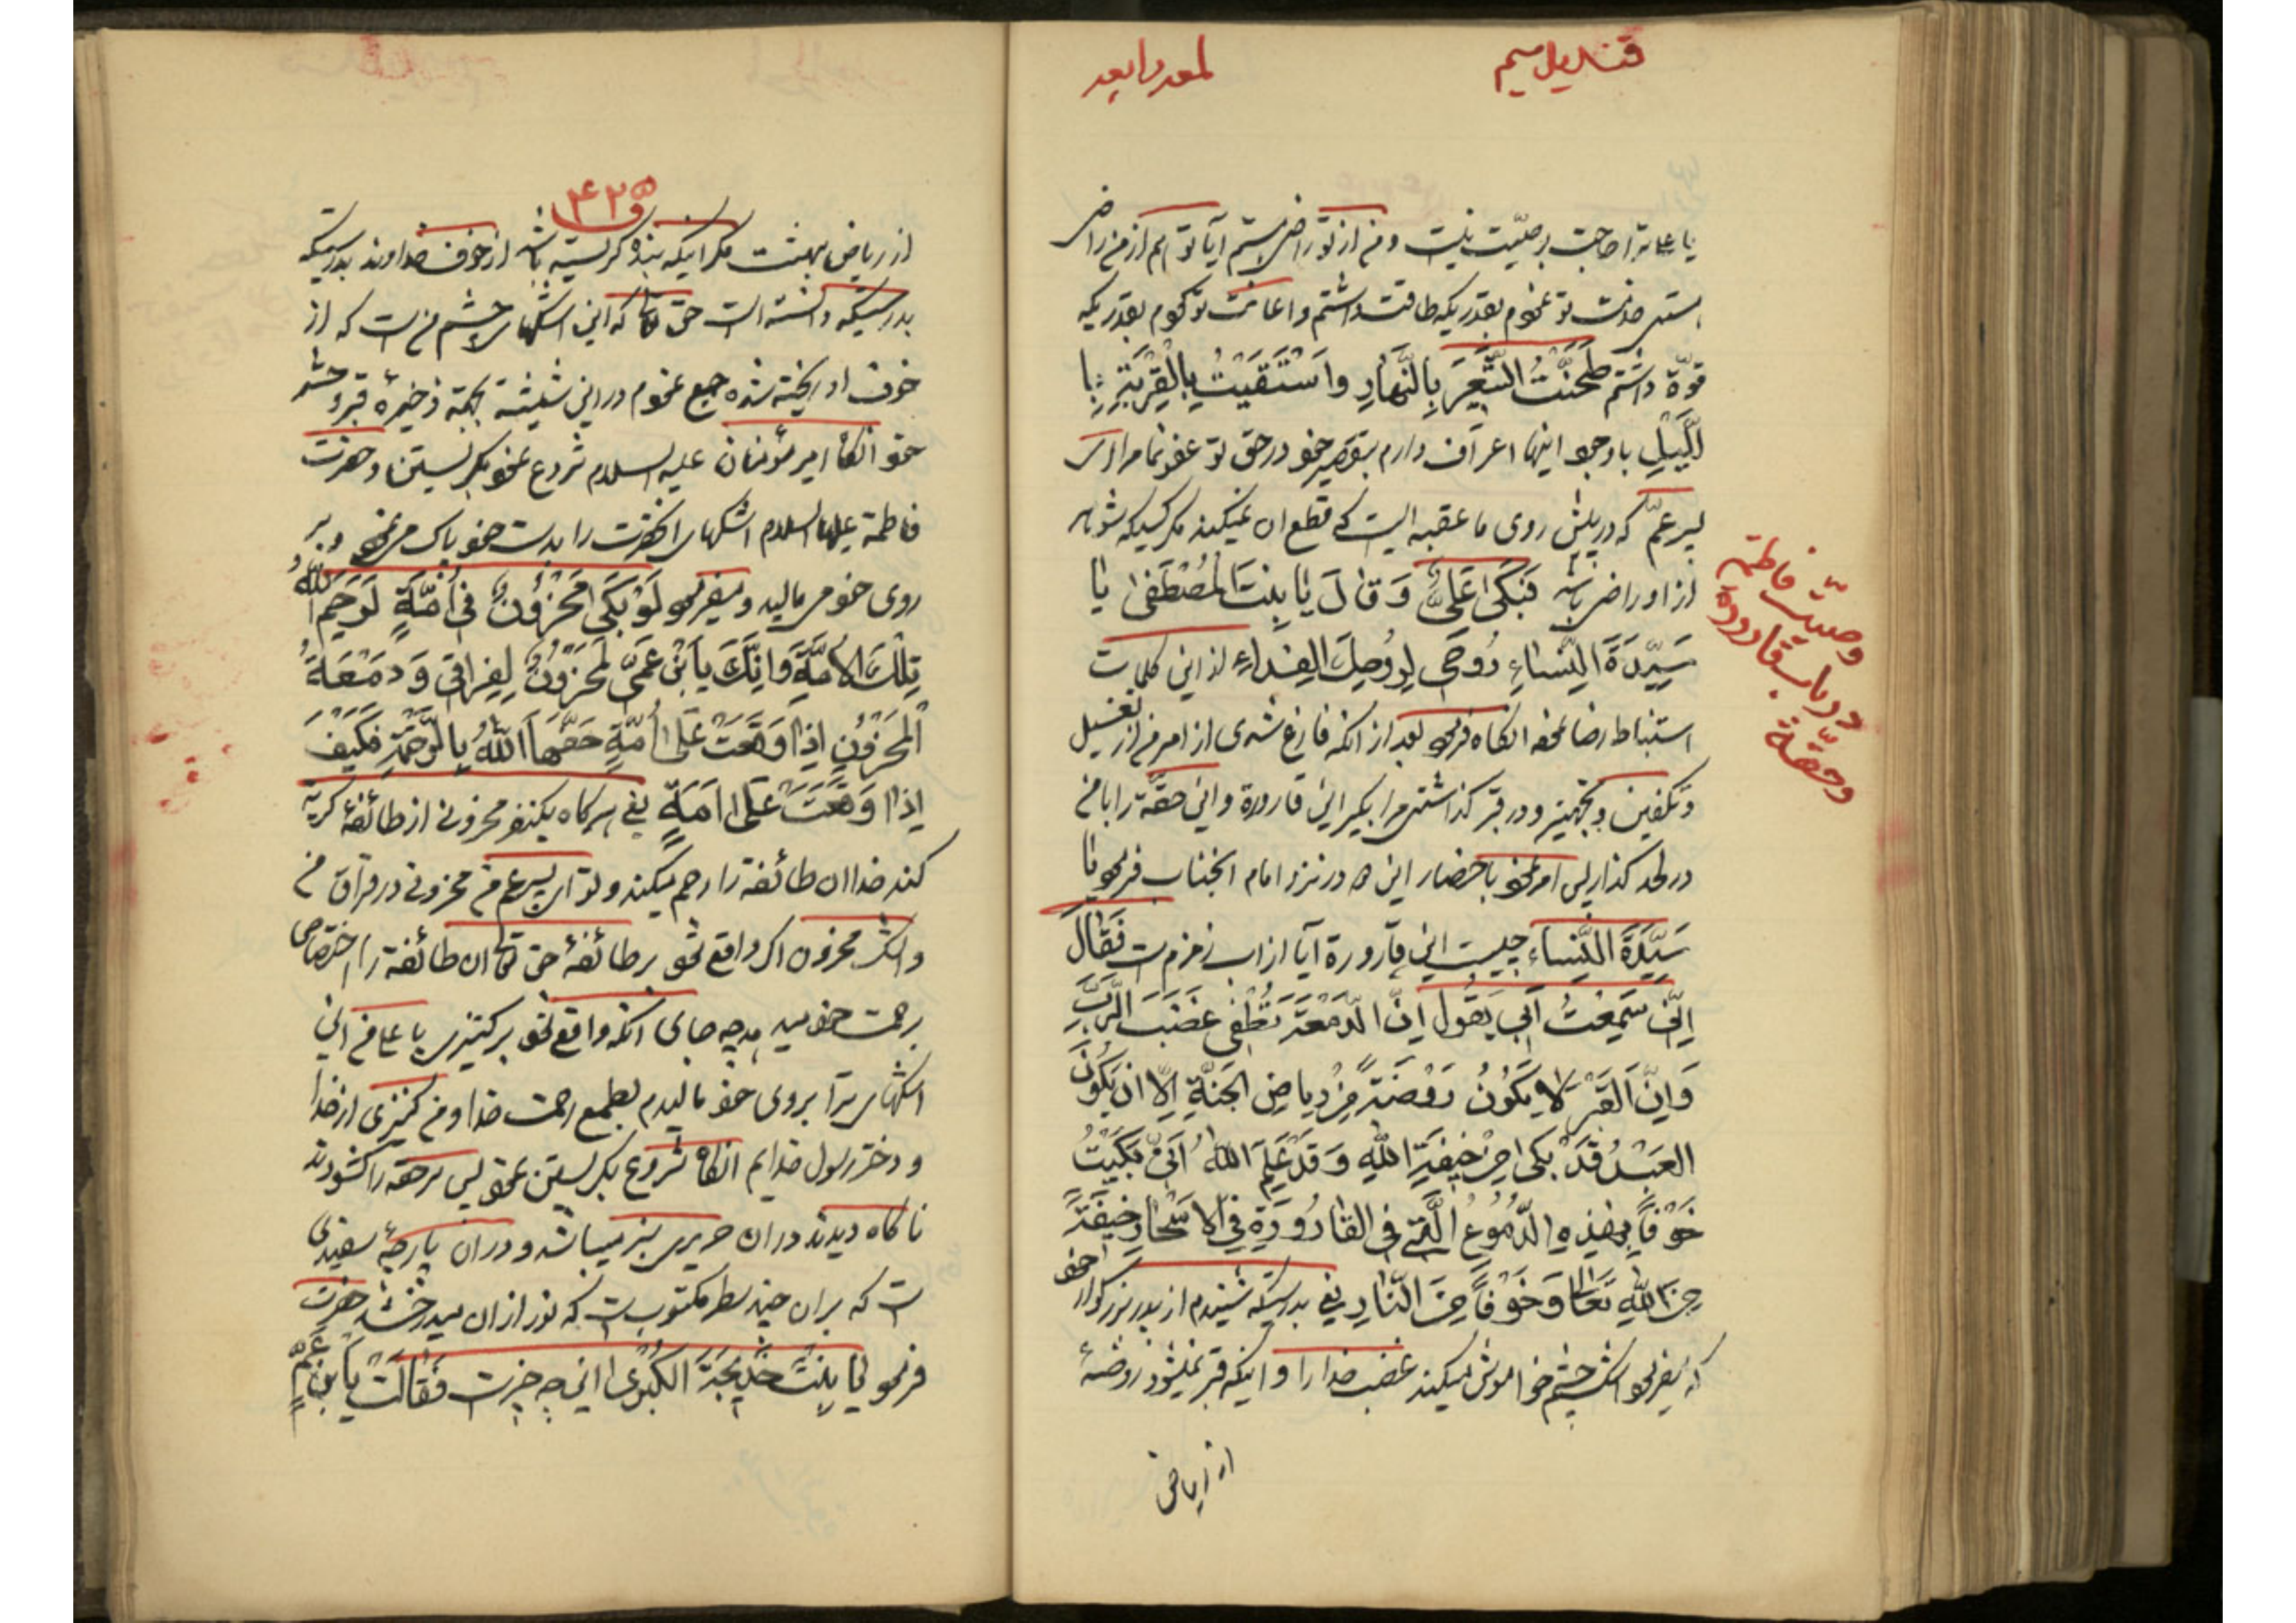 قندیل سیم
لمعه رابعه
یا علی ترا حاجت بوصیّت نیست و من از تو راضی هستم آیا تو هم از من راضی
هستی خدمت تو نمودم بقدریکه طاقت داشتم و اعانت تو کردم بقدریکه
قوّة داشتم طَحَنْتُ الشَّعِیرَ بِالنَّهَارِ وَاسْتَقَیْتُ بِالْقِرْبَةِ بِا
للَّیْلِ باوجود اینها اعتراف دارم بتقصیر خود در حق تو عفو نما مرا ای
پسر عمّ که در پیش روی ما عقبه ایست که قطع ان نمیکند مگر کسیکه شوهر
از او راضی باشد فَبَکَی عَلِیٌّ وَ قَالَ یَا بِنْتَ الْمُصْطَفَی یَا
سَیِّدَةَ النِّسَاءِ رُوحِی لِرُوحِكِ الْفِدَاءِ از این کلمات
استنباط رضا نمود انگاه فرمود بعد از انکه فارغ شدی از امر من از تغسیل
و تکفین و تجهیز و در قبر گذاشتی مرا بگیر این قارورة و این حقّة را با من
در لحد گذار پس امر نمود باحضار این هر دو نزد امام انجناب فرمود یا
سَیِّدَةَ النِّسَاءِ چیست این قارورة آیا از اب زمزم است فَقَالَ
اِنِّی سَمِعْتُ اَبِی یَقُولُ اِنَّ الدَّمْعَةَ تُطْفِی غَضَبَ الرَّبِّ
وَ اِنَّ الْقَبْرَ لَا یَکُونُ رَوْضَةً مِنْ رِیَاضِ الْجَنَّةِ اِلَّا اَنْ یَکُونَ
الْعَبْدُ قَدْ بَکَی مِنْ خِیفَةِ اللهِ وَ قَدْ عَلِمَ اللهُ اَنِّی بَکَیْتُ
خَوْفًا بِهَذِهِ الدُّمُوعِ الَّتِی فِی الْقَارُورَةِ فِی الْاَسْحَارِ خِیفَةً
مِنَ اللهِ تَعَالَی وَ خَوْفًا مِنَ النَّارِ یعنی بدرستیکه شنیدم از پدر بزرگوار خود
که میفرمود اشک چشم خواموش میکند غضب خدا را و اینکه قبر نمیشود روضهٔ
از ریاض
وصیّت فاطمة
در باب قارورة
و حقّة
۴۲۵
از ریاض بهشت مگر اینکه بنده گریسته باشد از خوف خداوند بدرستیکه
بدرستیکه دانسته است حق تعالی که این اشکهای چشم من است که از
خوف او ریخته شده جمع نمودم در این شیشة بجهة ذخیرهٔ قبر و حشر
خود انگاه امیر مؤمنان علیه السلام شروع نمود بگریستن و حضرت
فاطمة علیها السلام اشکهای انحضرت را بدست خود پاک می نمود و بر
روی خود می مالید و میفرمود لَوْ بَکَی مَحْزُونٌ فِی اُمَّةٍ لَرَحِمَ اللهُ
تِلْكَ الْاُمَّةَ وَ اِنَّكَ یَا بْنَ عَمِّی لَمَحْزُونٌ لِفِرَاقِی وَ دَمْعَةُ
الْمَحْزُونِ اِذَا وَقَعَتْ عَلَی اُمَّةٍ خَصَّهَا اللهُ بِالرَّحْمَةِ فَکَیْفَ
اِذَا وَقَعَتْ عَلَی اَمَةٍ یعنی هرگاه یکنفر محزونی از طائفهٔ گریة
کند خدا ان طائفة را رحم میکند و تو ای پسر عم من محزونی در فراق من
و اشک محزون اگر واقع شود بر طائفهٔ حق تعالی ان طائفة را اختصاص
برحمت خود میدهد چه جای انکه واقع شود بر کنیزی یا علی من این
اشکهای ترا بروی خود مالیدم بطمع رحمت خدا و من کنیزی از خدا
و دختر رسول خدایم انگاه شروع بگریستن نمود پس سر حقة را گشودند
ناگاه دیدند در ان حریری سبز میباشد و در ان پارچهٔ سفیدی
است که بر ان چند سطر مکتوب است که نور از ان میدرخشد حضرت
فرمود یَا بِنْتَ خَدِیجَةَ الْکُبْرَی این چه چیز است فَقَالَتْ یَا بْنَ عَمِّ